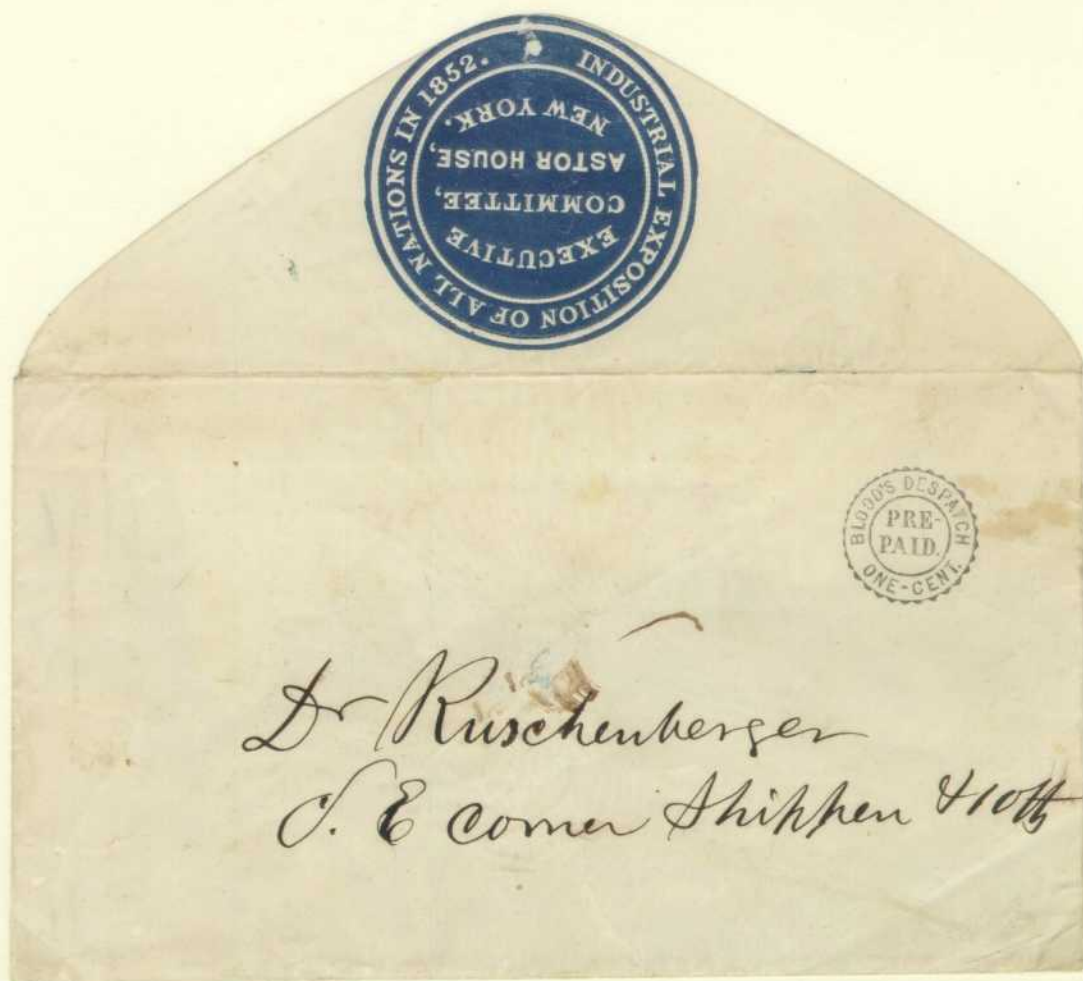 INDUSTRIAL EXPOSITION OF ALL NATIONS IN 1852.
EXECUTIVE
COMMITTEE,
ASTOR HOUSE,
NEW YORK.
BLOOD'S DESPATCH
PRE-
PAID.
ONE-CENT.
Dr Ruschenberger
S. E corner Shippen & 10th